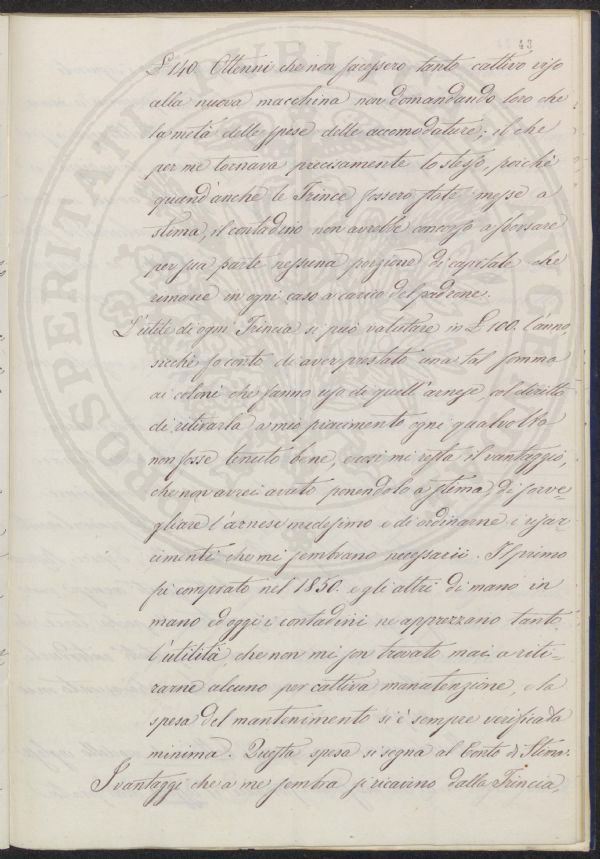 43
£ 140. Ottenni che non facessero tanto cattivo viso
alla nuova macchina non domandando loro che
la metà delle spese delle accomodature; il che
per me tornava precisamente lo stesso, poichè
quand'anche le Trince fossero state messe a
stima, il contadino non avrebbe concorso a sborsare
per sua parte nessuna porzione di capitale che
rimane in ogni caso a carico del padrone.
L'utile di ogni Trincia si può valutare in £ 100. l'anno,
sicchè fo conto di aver prestato una tal somma
ai coloni che fanno uso di quell'arnese, col diritto
di ritirarla a mio piacimento ogni qualvolta
non fosse tenuto bene, e così mi resta il vantaggio,
che non avrei avuto ponendolo a stima, di sorve-
gliare l'arnese medesimo e di ordinarne i risar-
cimenti che mi sembrano necessarii. Il primo
fu comprato nel 1850. e gli altri di mano in
mano ed oggi i contadini ne apprezzano tanto
l'utilità che non mi son trovato mai a riti-
rarne alcuno per cattiva manutenzione, e la
spesa del mantenimento si è sempre verificata
minima. Questa spesa si segna al Conto di Stima.
I vantaggi che a me sembra si ricavino dalla Trincia,
PROSPERITATI PUBLICAE